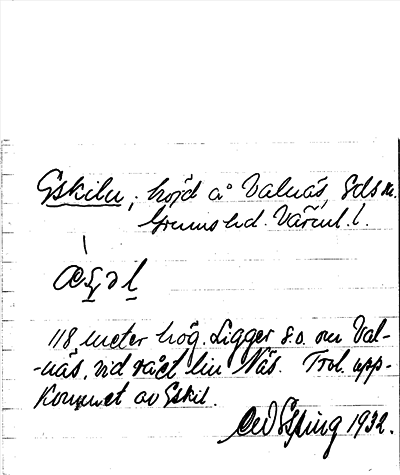 Eskiln, höjd å Valnäs, Eds sn.
Grums hd. Värml. l.
118 meter hög. Ligger s.o. om Val-
-näs, vid väct lin Näs. Trol. upp-
kommet av Eskil.
Esping 1932.